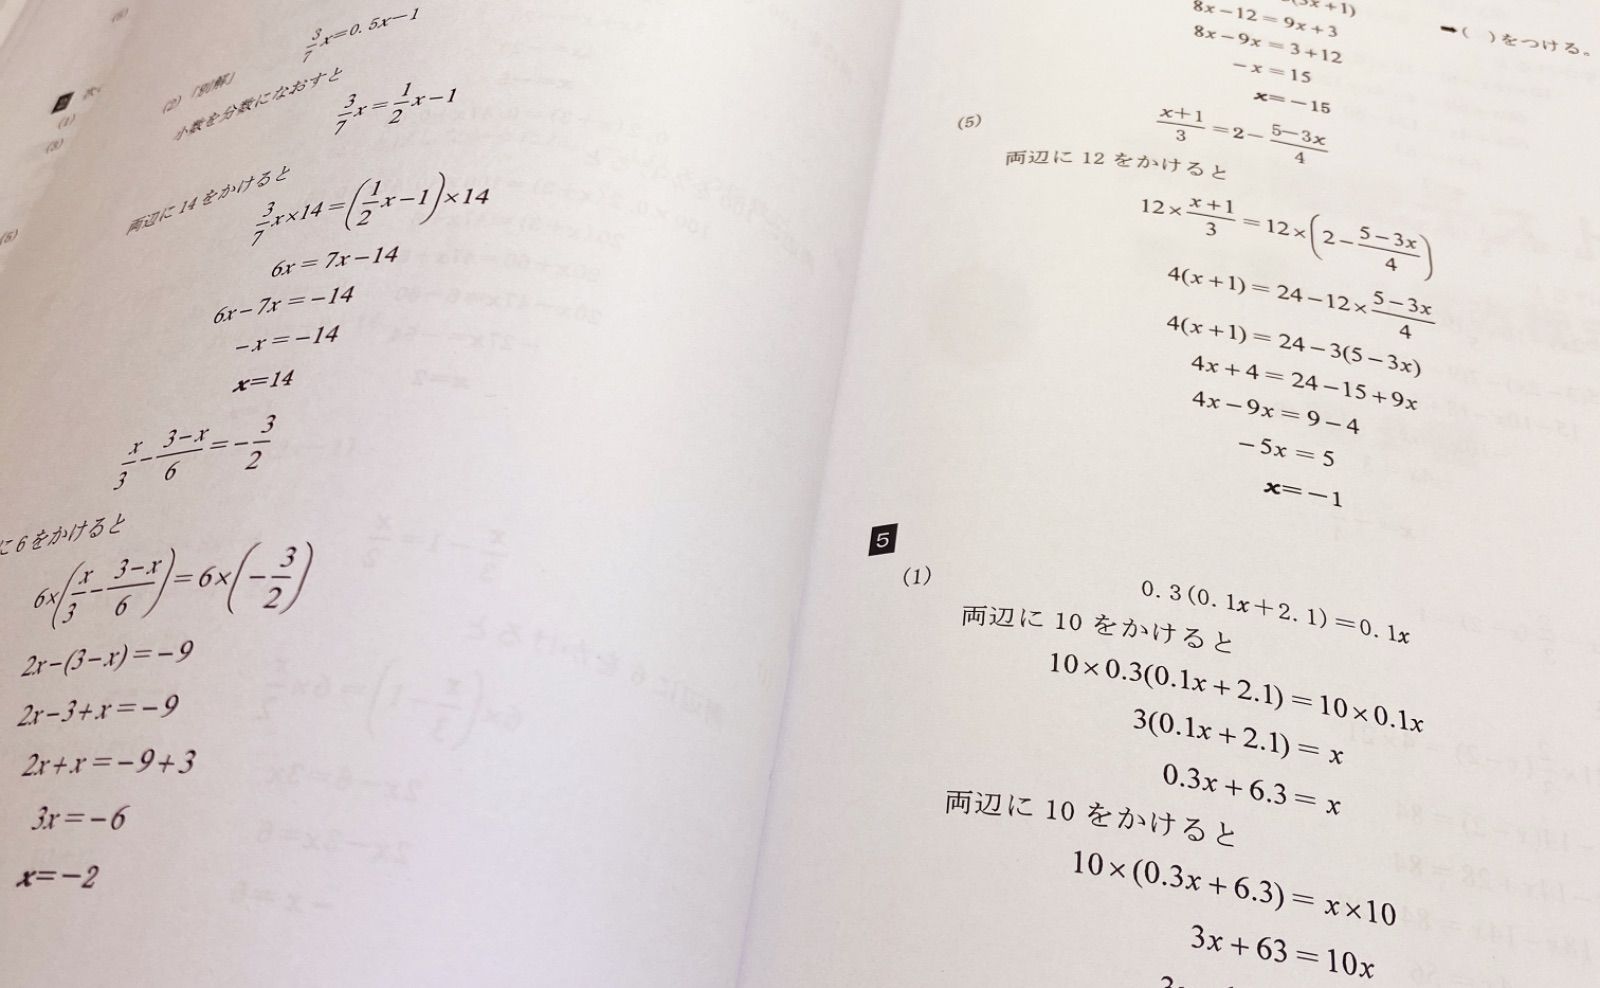 (2)「別解」
3/7 x=0.5x−1
小数を分数になおすと
3/7 x=1/2 x−1
両辺に14をかけると
3/7 x×14=(1/2 x−1)×14
6x=7x−14
6x−7x=−14
−x=−14
x=14
x/3−(3−x)/6=−3/2
に6をかけると
6×(x/3−(3−x)/6)=6×(−3/2)
2x−(3−x)=−9
2x−3+x=−9
2x+x=−9+3
3x=−6
x=−2
8x−12=9x+3
➡( )をつける。
8x−9x=3+12
−x=15
x=−15
(5)
(x+1)/3=2−(5−3x)/4
両辺に12をかけると
12×(x+1)/3=12×(2−(5−3x)/4)
4(x+1)=24−12×(5−3x)/4
4(x+1)=24−3(5−3x)
4x+4=24−15+9x
4x−9x=9−4
−5x=5
x=−1
5
(1)
0.3(0.1x+2.1)=0.1x
両辺に10をかけると
10×0.3(0.1x+2.1)=10×0.1x
3(0.1x+2.1)=x
0.3x+6.3=x
両辺に10をかけると
10×(0.3x+6.3)=x×10
3x+63=10x